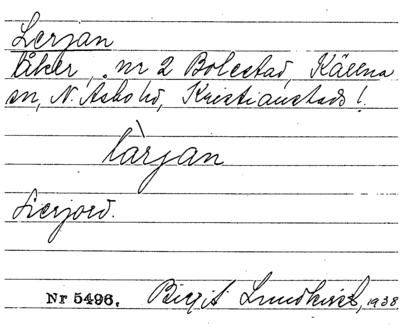 Lerjan
Åker, nr 2 Bolestad, Källna
sn, N. Åsbo hd, Kristianstads l.
làrjan
Lerjord.
Nr 5496. Birgit Lundkvist, 1938